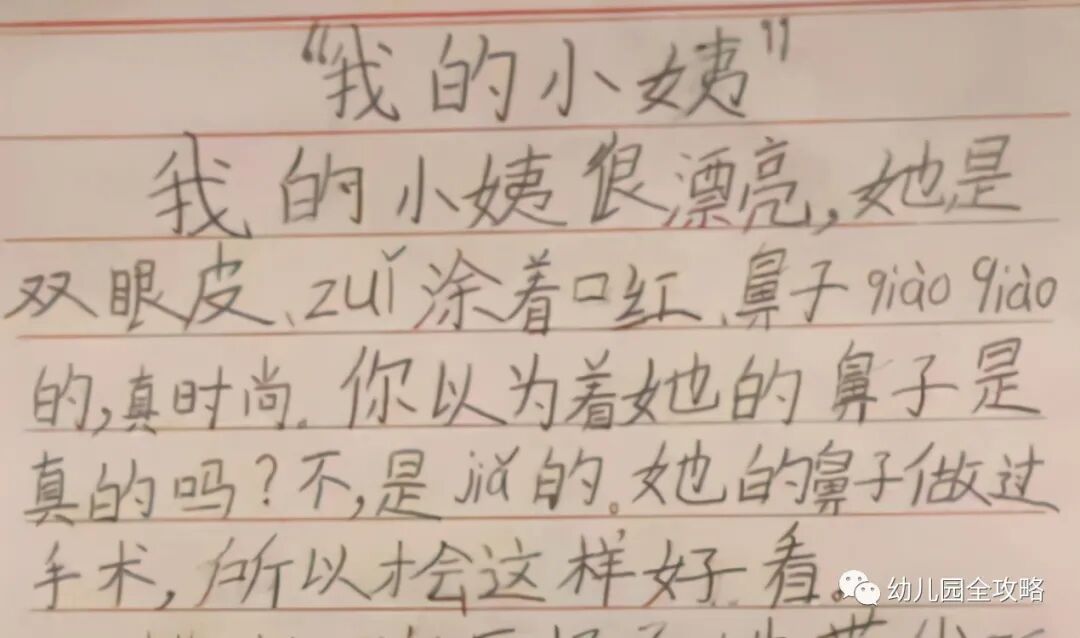 “我的小姨”
我的小姨很漂亮,她是
双眼皮、zuǐ涂着口红、鼻子qiào qiào
的,真时尚。你以为着她的鼻子是
真的吗?不,是jiǎ的。她的鼻子做过
手术,所以才会这样好看。
幼儿园全攻略